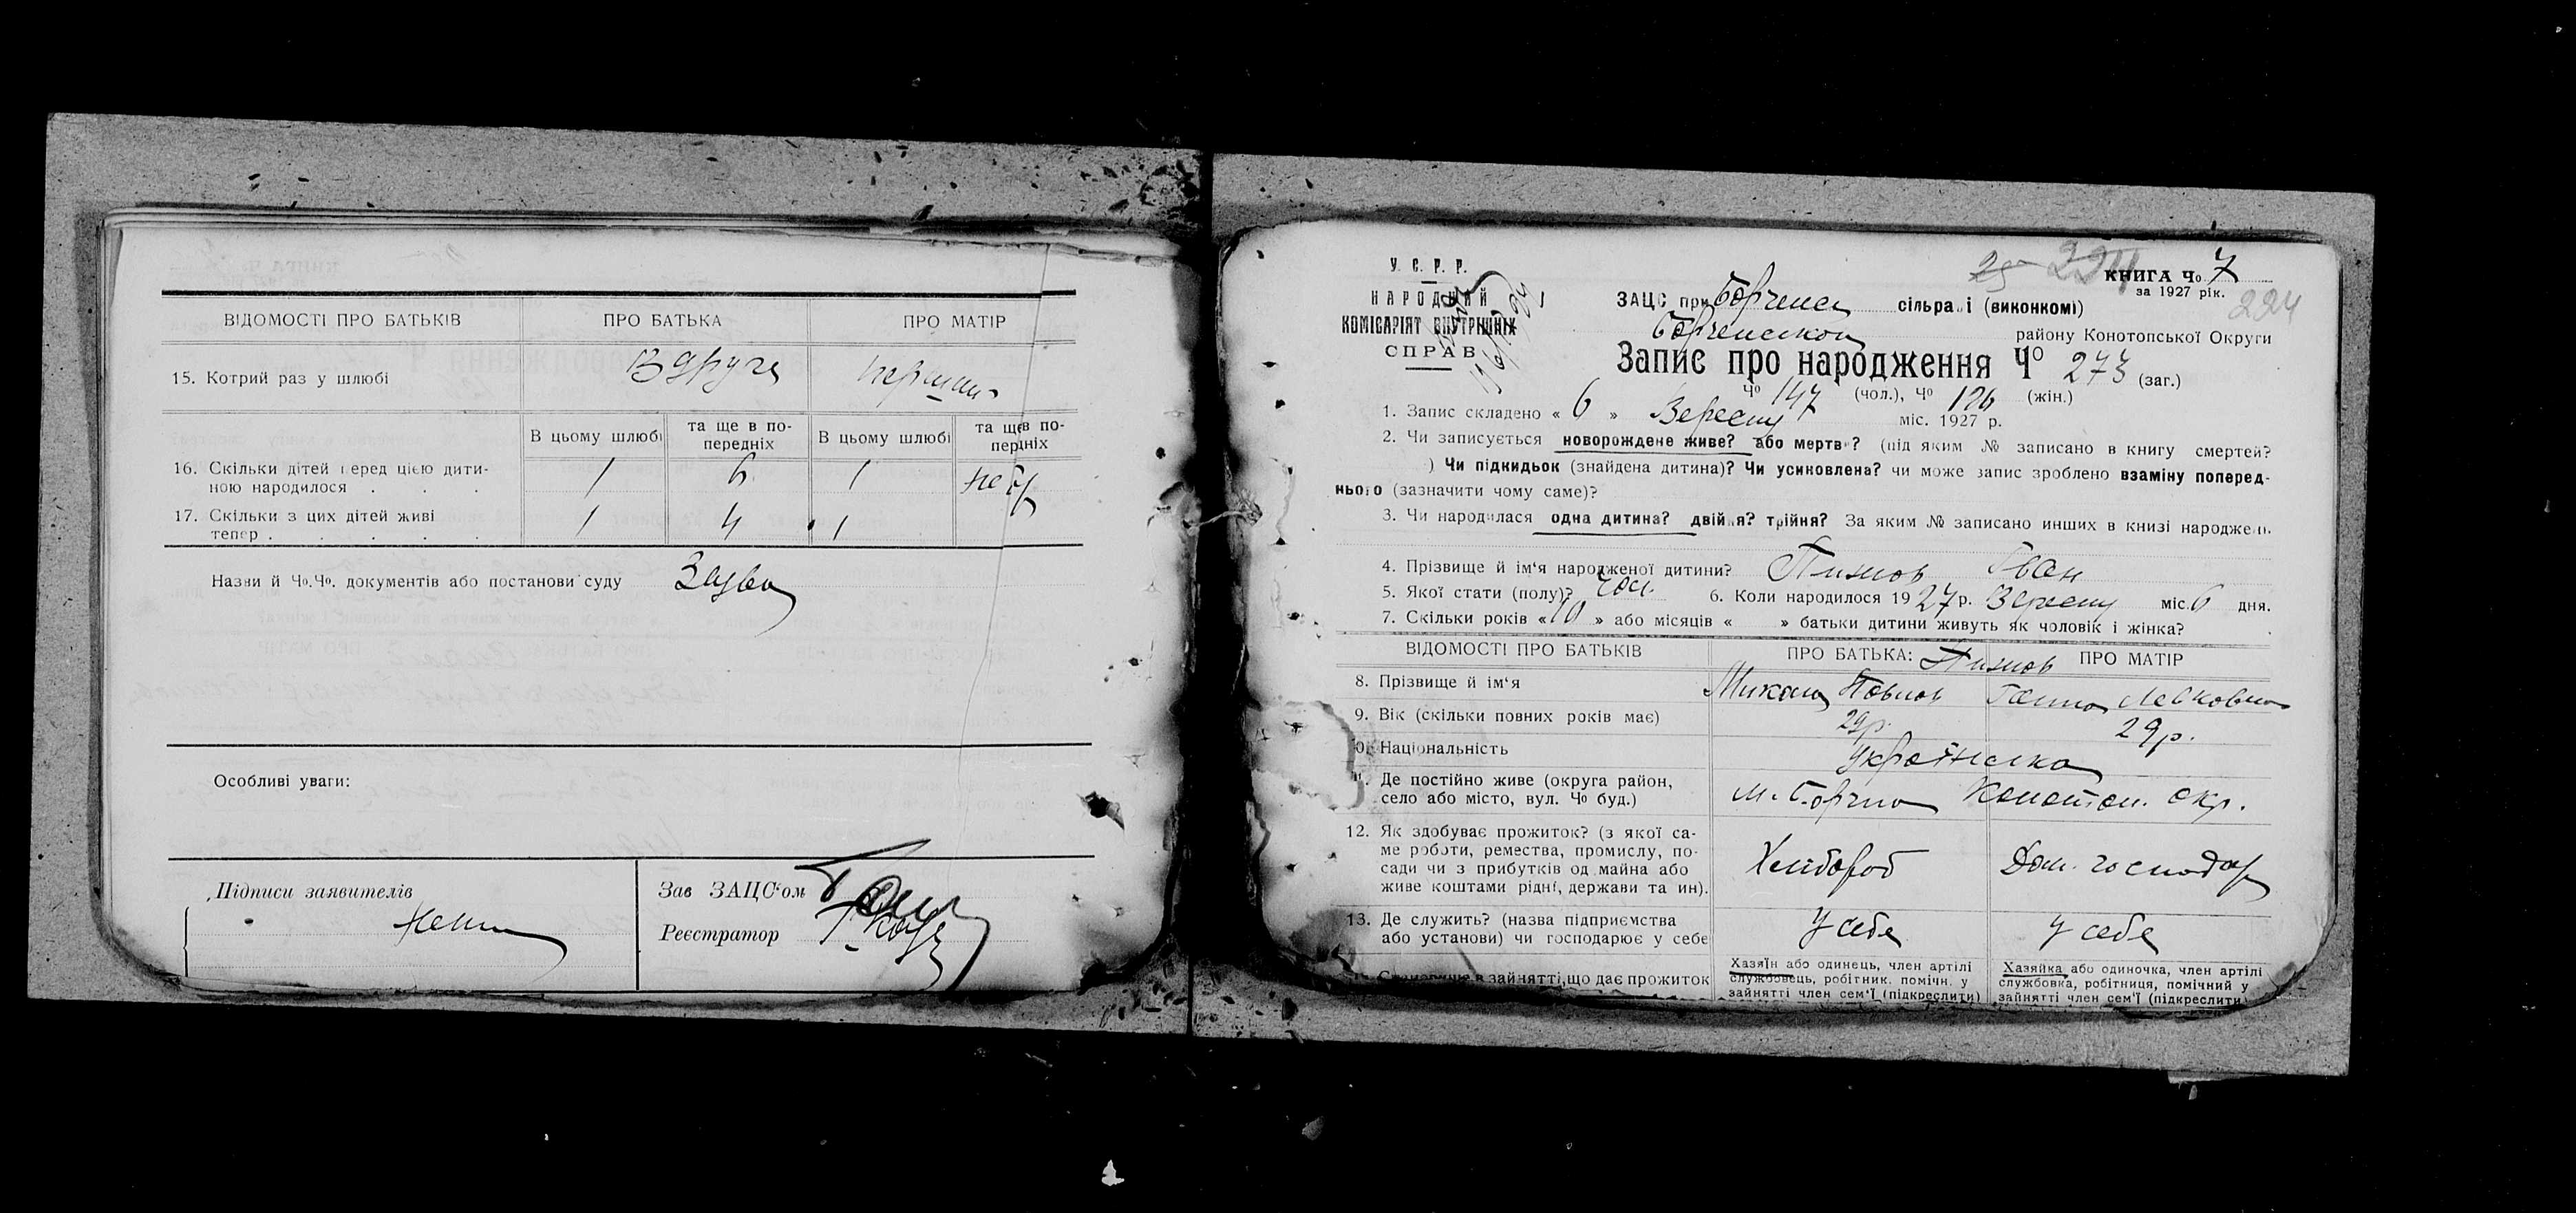 ВІДОМОСТІ ПРО БАТЬКІВ ПРО БАТЬКА ПРО МАТІР
15. Котрий раз у шлюбі Вдруге
В цьому шлюбі та ще в по-передніх В цьому шлюбі та ще в по-передніх
16. Скільки дітей перед цією дити-
ною народилося . . . 1 6 1
17. Скільки з цих дітей живі
тепер . . . . . 1 4 1
Назви й Чо.Чо. документів або постанови суду Заява
Особливі уваги:
Підписи заявителів
Зав ЗАЦС'ом
Реєстратор
У. С. Р. Р.
НАРОДНИЙ
КОМІСАРІЯТ ВНУТРІШНІХ
СПРАВ
224
КНИГА Чо 7
за 1927 рік.
224
ЗАЦС при Борзенск сільраді (виконкомі)
Борзенском району Конотопської Округи
Запис про народження Чо 273 (заг.)
Чо 147 (чол.), Чо 126 (жін.)
1. Запис складено « 6 » Вересня міс. 1927 р.
2. Чи записується новорождене живе? або мертве? (під яким № записано в книгу смертей?
) Чи підкидьок (знайдена дитина)? Чи усиковлена? чи може запис зроблено взаміну поперед-
нього (зазначити чому саме)?
3. Чи народилася одна дитина? двійня? трійня? За яким № записано инших в книзі народжень
4. Прізвище й ім'я народженої дитини? Іван
5. Якої стати (полу)? чол. 6. Коли народилося 1927 р. Вересня міс. 6 дня.
7. Скільки років « 10 » або місяців « » батьки дитини живуть як чоловік і жінка?
ВІДОМОСТІ ПРО БАТЬКІВ ПРО БАТЬКА: ПРО МАТІР
8. Прізвище й ім'я Михаил Павлов Ганна Левковна
9. Вік (скільки повних років має) 29р. 29р.
10. Національність Українська
11. Де постійно живе (округа район,
село або місто, вул. Чо буд.) м. Борзна Конотоп. окр.
12. Як здобуває прожиток? (з якої са-
ме роботи, ремества, промислу, по-
сади чи з прибутків од майна або
живе коштами рідні, держави та ин). Хлібороб Дом. господар
13. Де служить? (назва підприємства
або установи) чи господарює у себе У себе У себе
14. Становище в зайнятті, що дає прожиток
Хазяїн або одинець, член артілі
службовець, робітник. помічн. у
зайнятті член сем'ї (підкреслити)
Хазяйка або одиночка, член артілі
службовка, робітниця, помічний у
зайнятті член сем'ї (підкреслити)